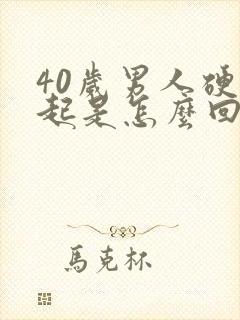 40歲男人硬
起是怎麼回
馬克杯